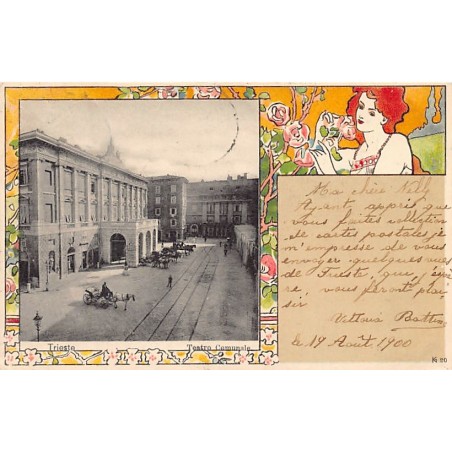 Ma chère Nelly
Ayant appris que
vous faites collection
de cartes postales, je
m'empresse de vous
envoyer quelques vues
de Trieste, que, j'espè-
re, vous feront plai-
sir
Vittoria
le 19 Août 1900
Trieste Teatro Comunale
20